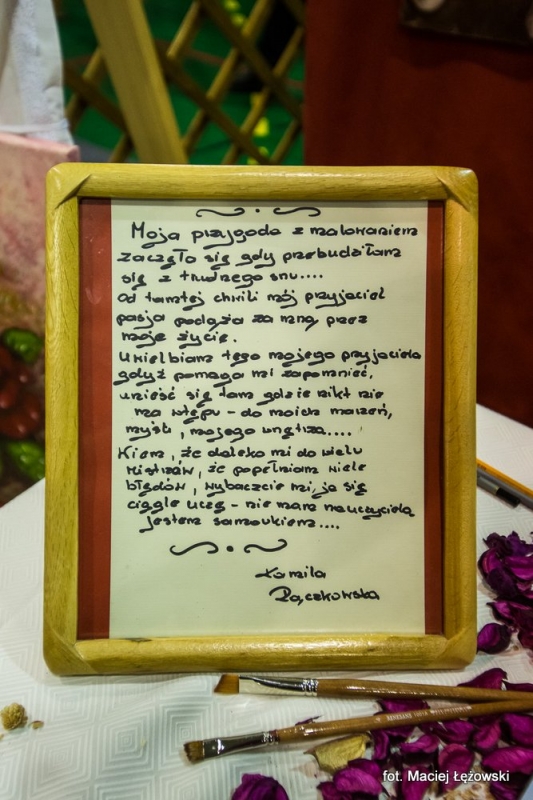 Moja przygoda z malowaniem
zaczęło się gdy przebudziłam
się z trudnego snu....
Od tamtej chwili mój przyjaciel
pasja podąża za mną przez
moje życie.
Uwielbiam tego mojego przyjaciela
gdyż pomaga mi zapomnieć,
unieść się tam gdzie nikt nie
ma wstępu - do moich marzeń,
myśli, mojego wnętrza....
Wiem, że daleko mi do wielu
Mistrzów, że popełniam wiele
błędów, wybaczcie mi, ja się
ciągle uczę - nie mam nauczyciela
jestem samoukiem....
Kamila
Pączkowska
fot. Maciej Łężowski